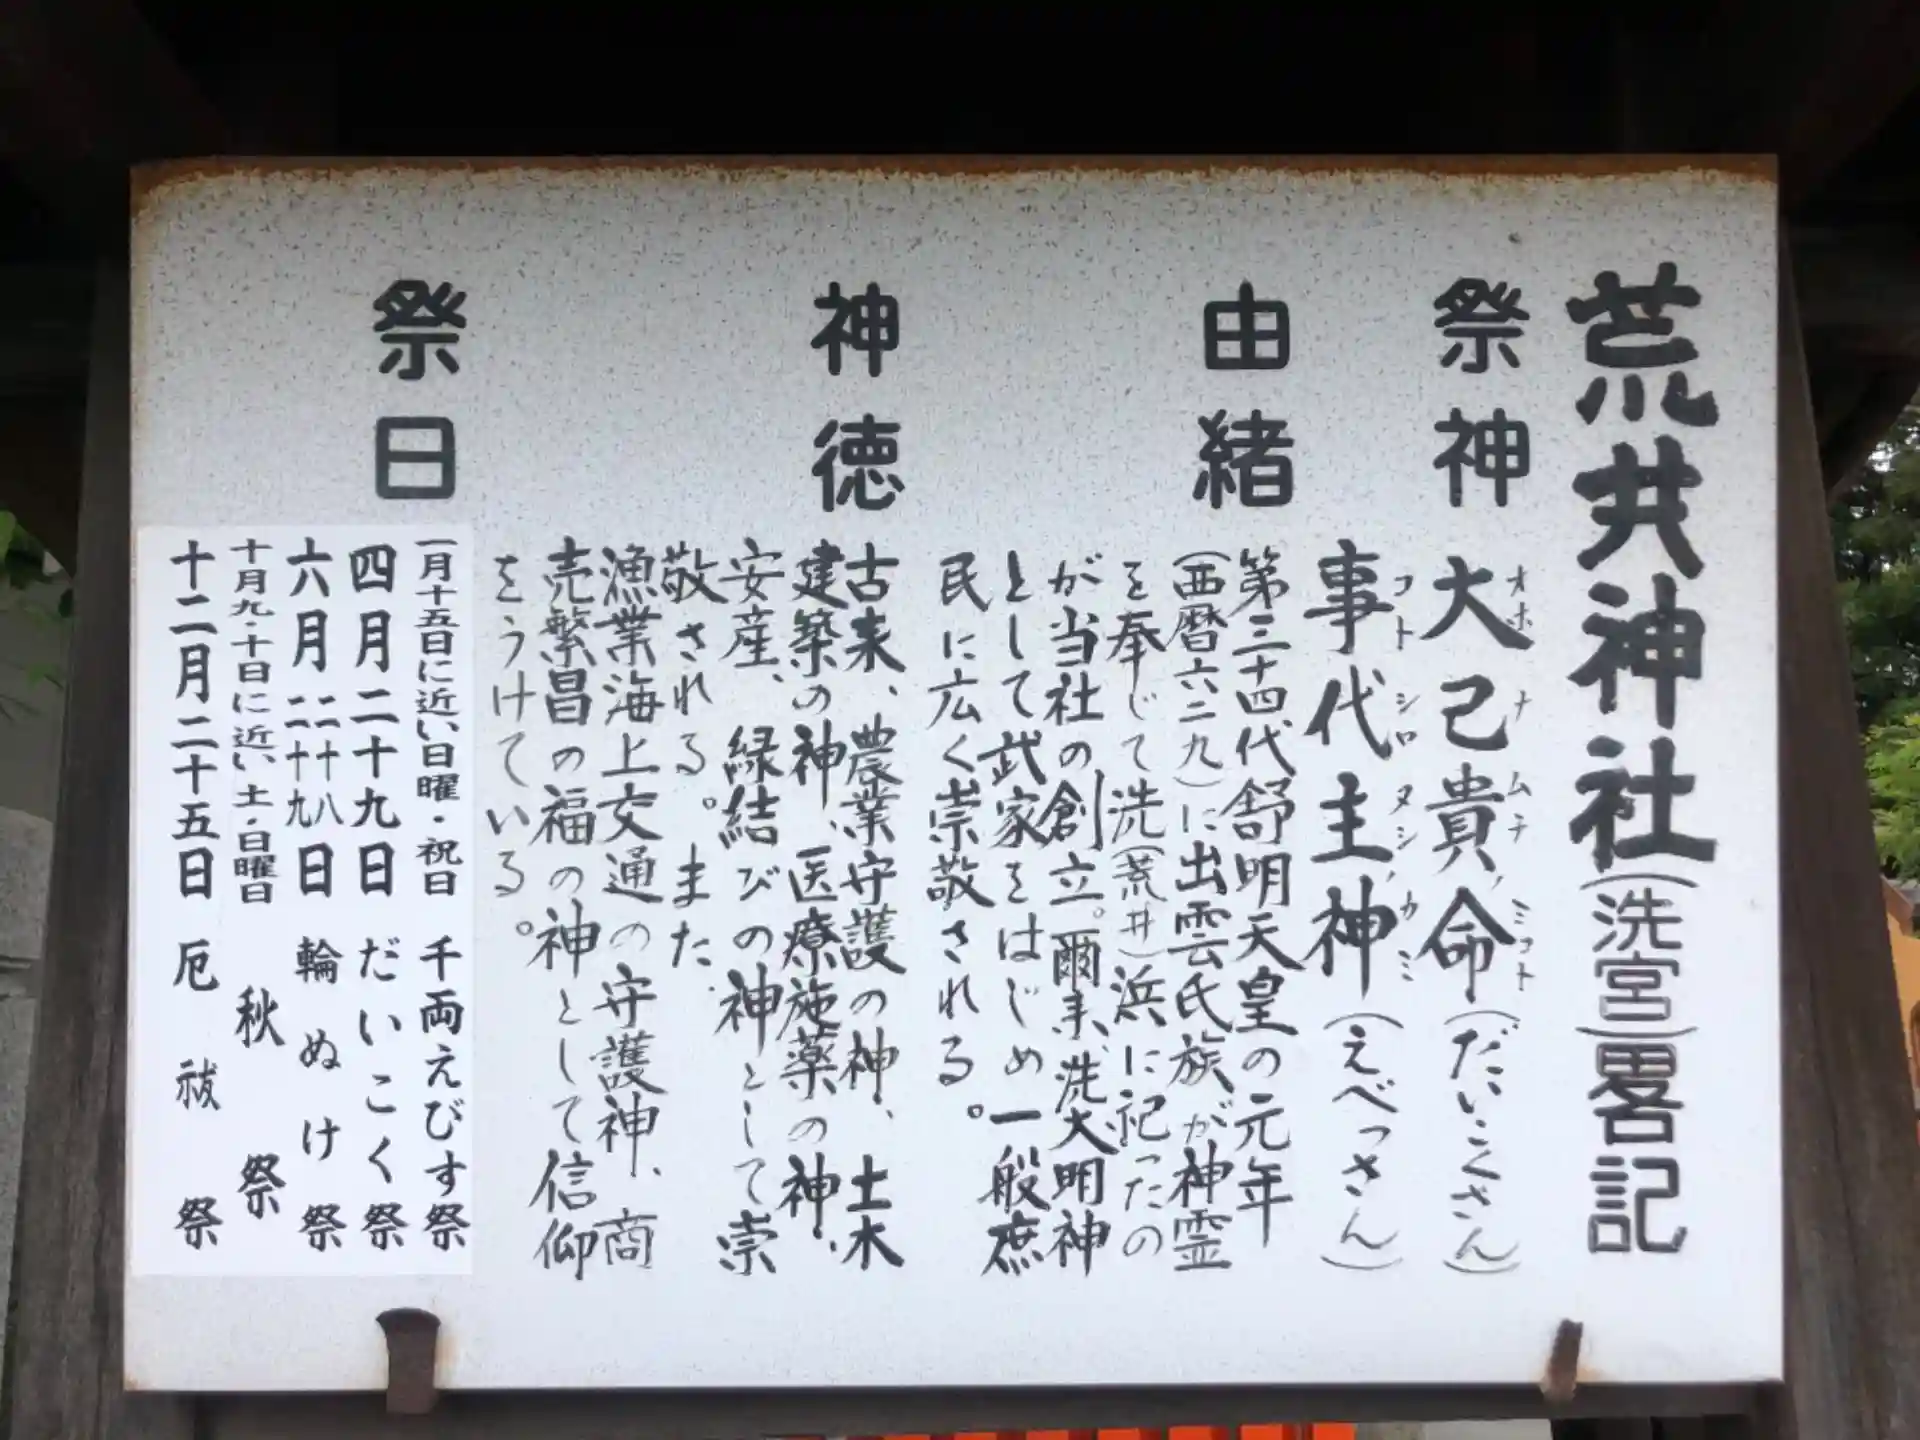 荒井神社(洗宮)畧記
祭神
大己貴命(だいこくさん)
オホナムチノミコト
事代主神(えべっさん)
コトシロヌシノカミ
由緒
第三十四代舒明天皇の元年
(西暦六二九)に出雲氏族が神霊
を奉じて洗(荒井)浜に祀ったの
が当社の創立。爾来、洗大明神
として武家をはじめ一般庶
民に広く崇敬される。
神徳
古来、農業守護の神、土木
建築の神、医療施薬の神、
安産、縁結びの神として崇
敬される。また
漁業海上交通の守護神、商
売繁昌の福の神として信仰
をうけている。
祭日
一月十五日に近い日曜・祝日 千両えびす祭
四月二十九日 だいこく祭
六月二十八二十九日 輪ぬけ祭
十月九・十日に近い土・日曜日 秋祭
十二月二十五日 厄祓祭